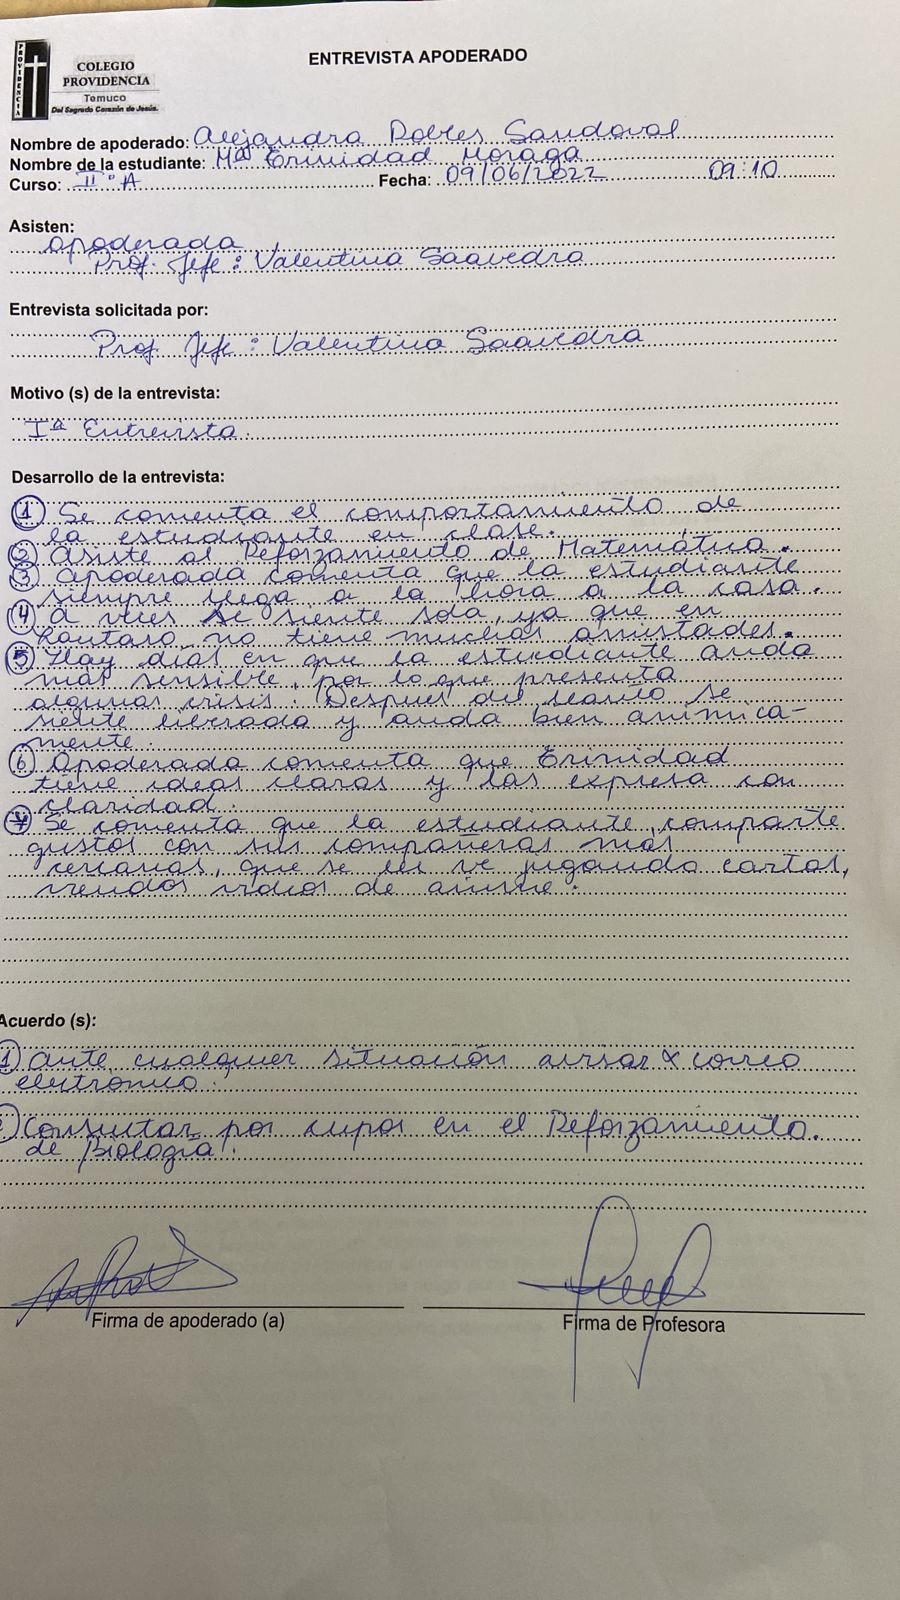 ENTREVISTA APODERADO
PROVIDENCIA
COLEGIO
PROVIDENCIA
Temuco
Del Sagrado Corazón de Jesús.
Nombre de apoderado: Alejandra Robles Sandoval
Nombre de la estudiante: Mª Trinidad Moraga
Curso: II°A Fecha: 09/06/2022 09:10
Asisten:
apoderada
Prof. Jefe: Valentina Saavedra
Entrevista solicitada por:
Prof. Jefe: Valentina Saavedra
Motivo (s) de la entrevista:
Iª Entrevista.
Desarrollo de la entrevista:
1 Se comenta el comportamiento de
la estudiante en clase.
2 Asiste al Reforzamiento de Matemática.
3 Apoderada comenta que la estudiante
siempre llega a la hora a la casa.
4 A veces se siente sola, ya que en
Lautaro no tiene muchas amistades.
5 Hay días en que la estudiante anda
más sensible, por lo que presenta
algunas crisis. Después del llanto se
siente liberada y anda bien anímica-
mente.
6 Apoderada comenta que Trinidad
tiene ideas claras y las expresa con
claridad.
7 Se comenta que la estudiante, comparte
gustos con sus compañeras más
cercanas, que se les ve jugando cartas,
viendos videos de anime.
Acuerdo (s):
1) Ante cualquier situación avisar x correo
eletrónico.
Consultar por cupos en el Reforzamiento.
de Biología.
Firma de apoderado (a)
Firma de Profesora